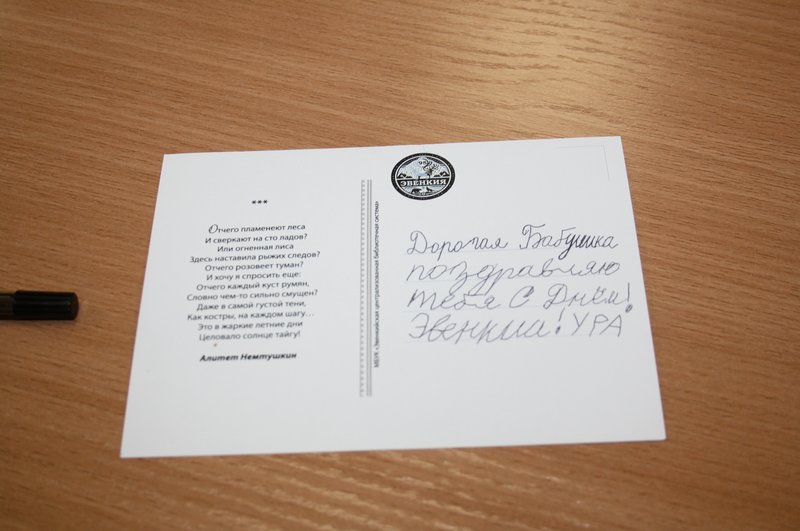 ***
Отчего пламенеют леса
И сверкают на сто ладов?
Или огненная лиса
Здесь наставила рыжих следов?
Отчего розовеет туман?
И хочу я спросить еще:
Отчего каждый куст румян,
Словно чем-то сильно смущен?
Даже в самой густой тени,
Как костры, на каждом шагу…
Это в жаркие летние дни
Целовало солнце тайгу!
Алитет Немтушкин
МБУК «Эвенкийская централизованная библиотечная система»
ЭВЕНКИЯ
Дорогая Бабушка
поздравляю
тебя С Днём!
Эвенкии! УРА